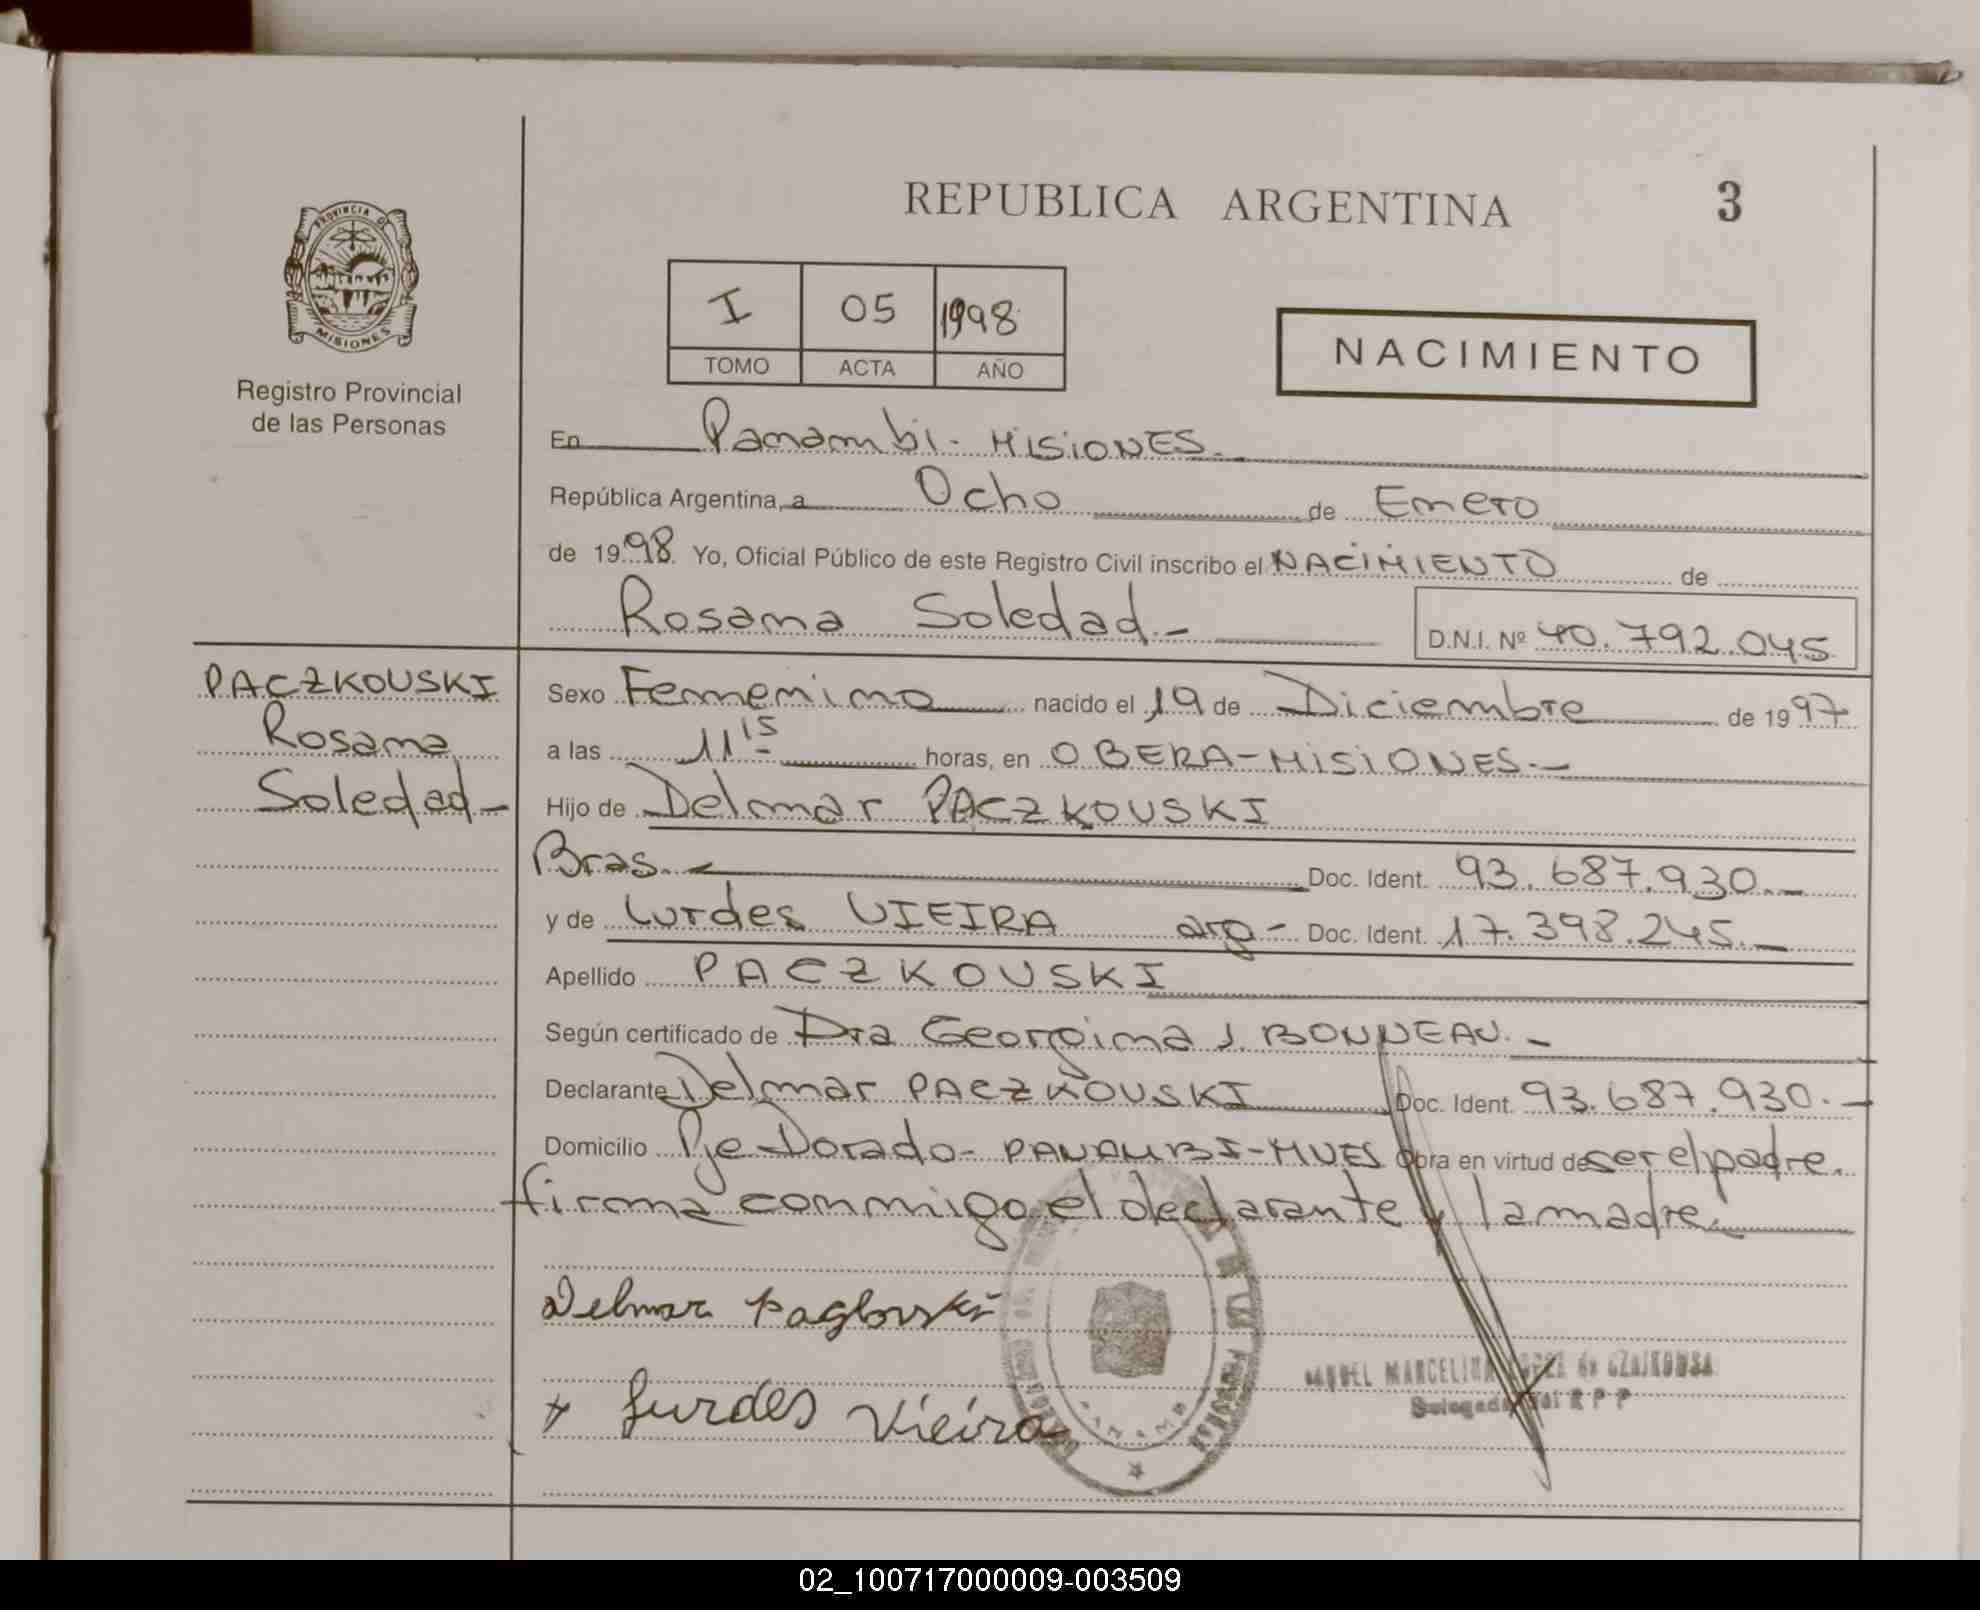 REPUBLICA ARGENTINA 3
PROVINCIA DE
MISIONES
Registro Provincial
de las Personas
I 05 1998
TOMO ACTA AÑO
NACIMIENTO
En Panambi - MISIONES.
República Argentina, a Ocho de Enero
de 1998. Yo, Oficial Público de este Registro Civil inscribo el NACIMIENTO de
Rosana Soledad.-
D.N.I. Nº 40.792.045
PACZKOUSKI
Rosana
Soledad-
Sexo Femenino nacido el 19 de Diciembre de 1997
a las 11 15 horas, en OBERA-MISIONES.-
Hijo de Delmar PACZKOUSKI
Bras.- Doc. Ident. 93.687.930.-
y de Lurdes VIEIRA arg- Doc. Ident. 17.398.245.-
Apellido PACZKOUSKI
Según certificado de Dra Georgina J. BONNEAU.-
Declarante Delmar PACZKOUSKI Doc. Ident. 93.687.930.-
Domicilio Pje Dorado- PANAMBI-MNES Obra en virtud de ser el padre.
firma conmigo el declarante y la madre.
Delmar
Lurdes Vieira
PANAMBI
02_100717000009-003509